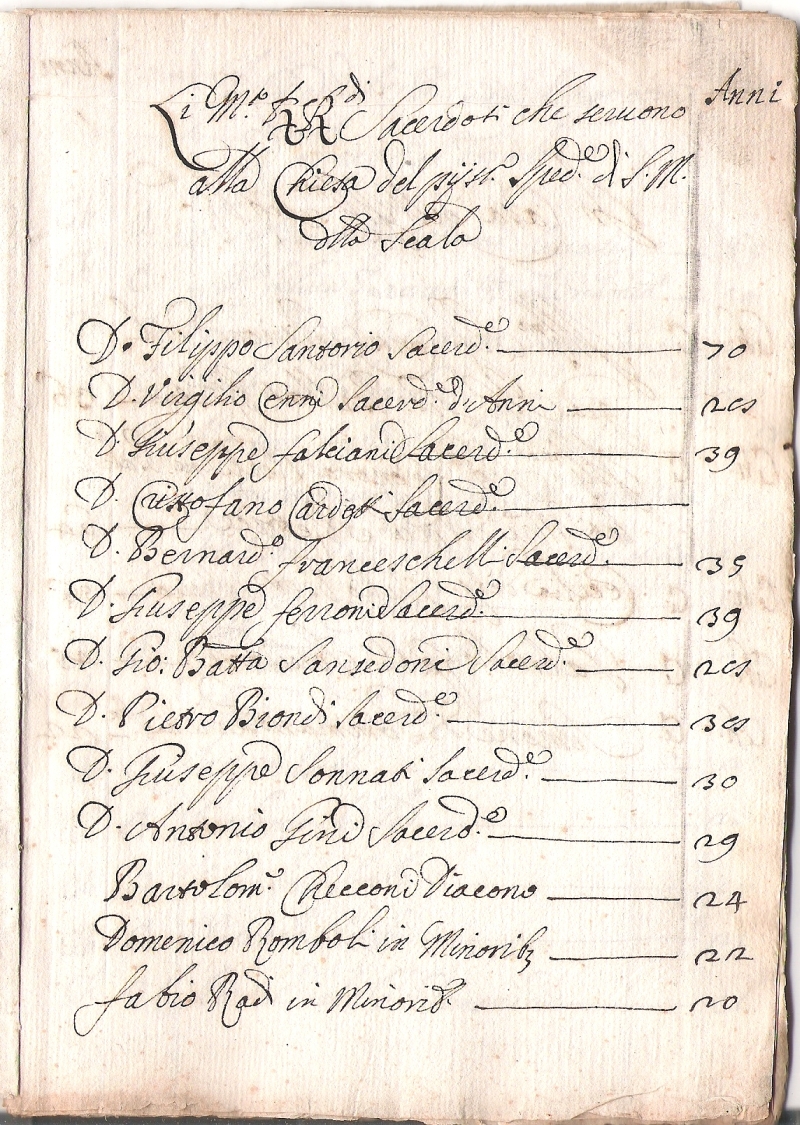 Anni
Li M.to RR.di Sacerdoti che seruono
alla Chiesa del Sped.e di S. M.
della Scala
D. Filippo Santorio Sacerd.e 70
D. Virgilio Cenni Sacerd.e d'Anni
D. Giuseppe falciani Sacerd.e 39
D. Cristofano Sacerd.e
D. Bernard.o franceschelli Sacerd.e 35
D. Giuseppe ferroni Sacerd.e 39
D. Gio: Batta Sansedoni Sacerd.e
D. Pietro Biondi Sacerd.e
D. Giuseppe Sonnati Sacerd.e 30
D. Antonio Gini Sacerd.e 29
Bartolom.o Checconi Diacono 24
Domenico Romboli in Minorib3 22
fabio Radi in Minorib. 20